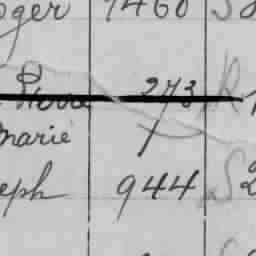 oger 1460 S
Pierre 273 R
marie
eph 944 S2